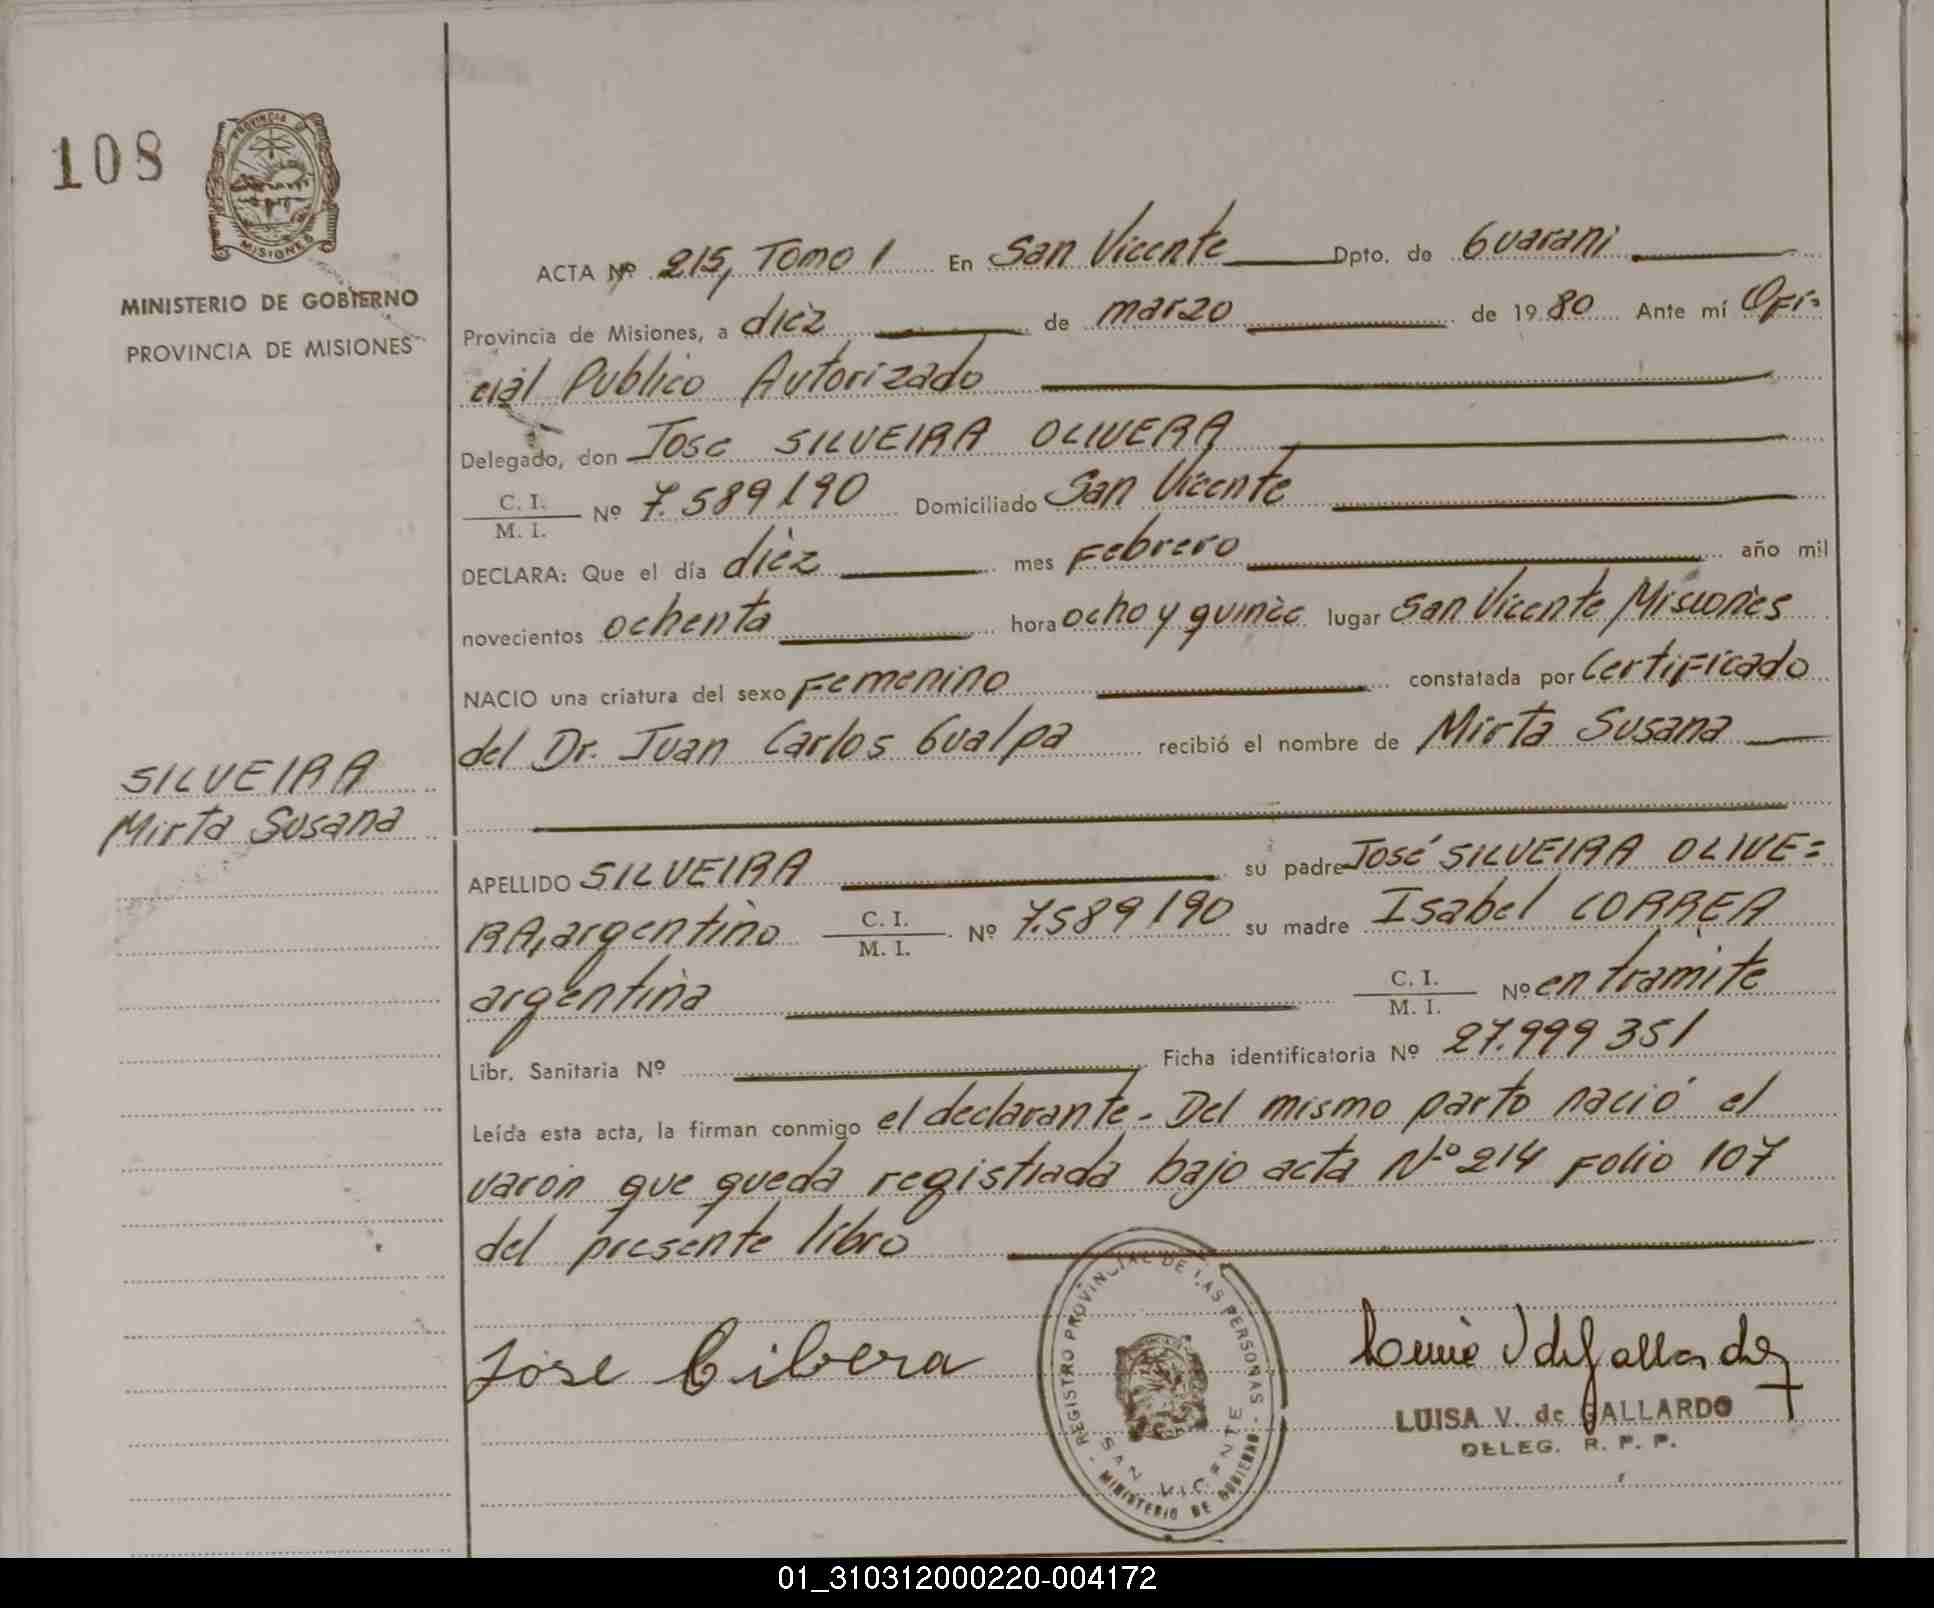 108
PROVINCIA DE
MISIONES
MINISTERIO DE GOBIERNO
PROVINCIA DE MISIONES
ACTA Nº 215, Tomo 1 En San Vicente Dpto. de Guarani
Provincia de Misiones, a diez de marzo de 1980 Ante mí Ofi=
cial Publico Autorizado
Delegado, don Jose SILVEIRA OLIVERA
C. I.
M. I. Nº 7.589190 Domiciliado San Vicente
DECLARA: Que el día diez mes Febrero año mil
novecientos ochenta hora ocho y quince lugar San Vicente Misiones
NACIO una criatura del sexo Femenino constatada por Certificado
del Dr. Juan Carlos Gualpa recibió el nombre de Mirta Susana
SILVEIRA
Mirta Susana
APELLIDO SILVEIRA su padre José SILVEIRA OLIVE=
RA, argentino C. I.
M. I. Nº 7.589190 su madre Isabel CORREA
argentina C. I.
M. I. Nº en tramite
Libr. Sanitaria Nº Ficha identificatoria Nº 27.999351
Leída esta acta, la firman conmigo el declarante - Del mismo parto nació el
varon que queda registrada bajo acta Nº 214 Folio 107
del presente libro
José
REGISTRO PROVINCIAL DE LAS PERSONAS
SAN VICENTE
- MINISTERIO DE GOBIERNO -
LUISA V. de GALLARDO
DELEG. R. P. P.
01_310312000220-004172